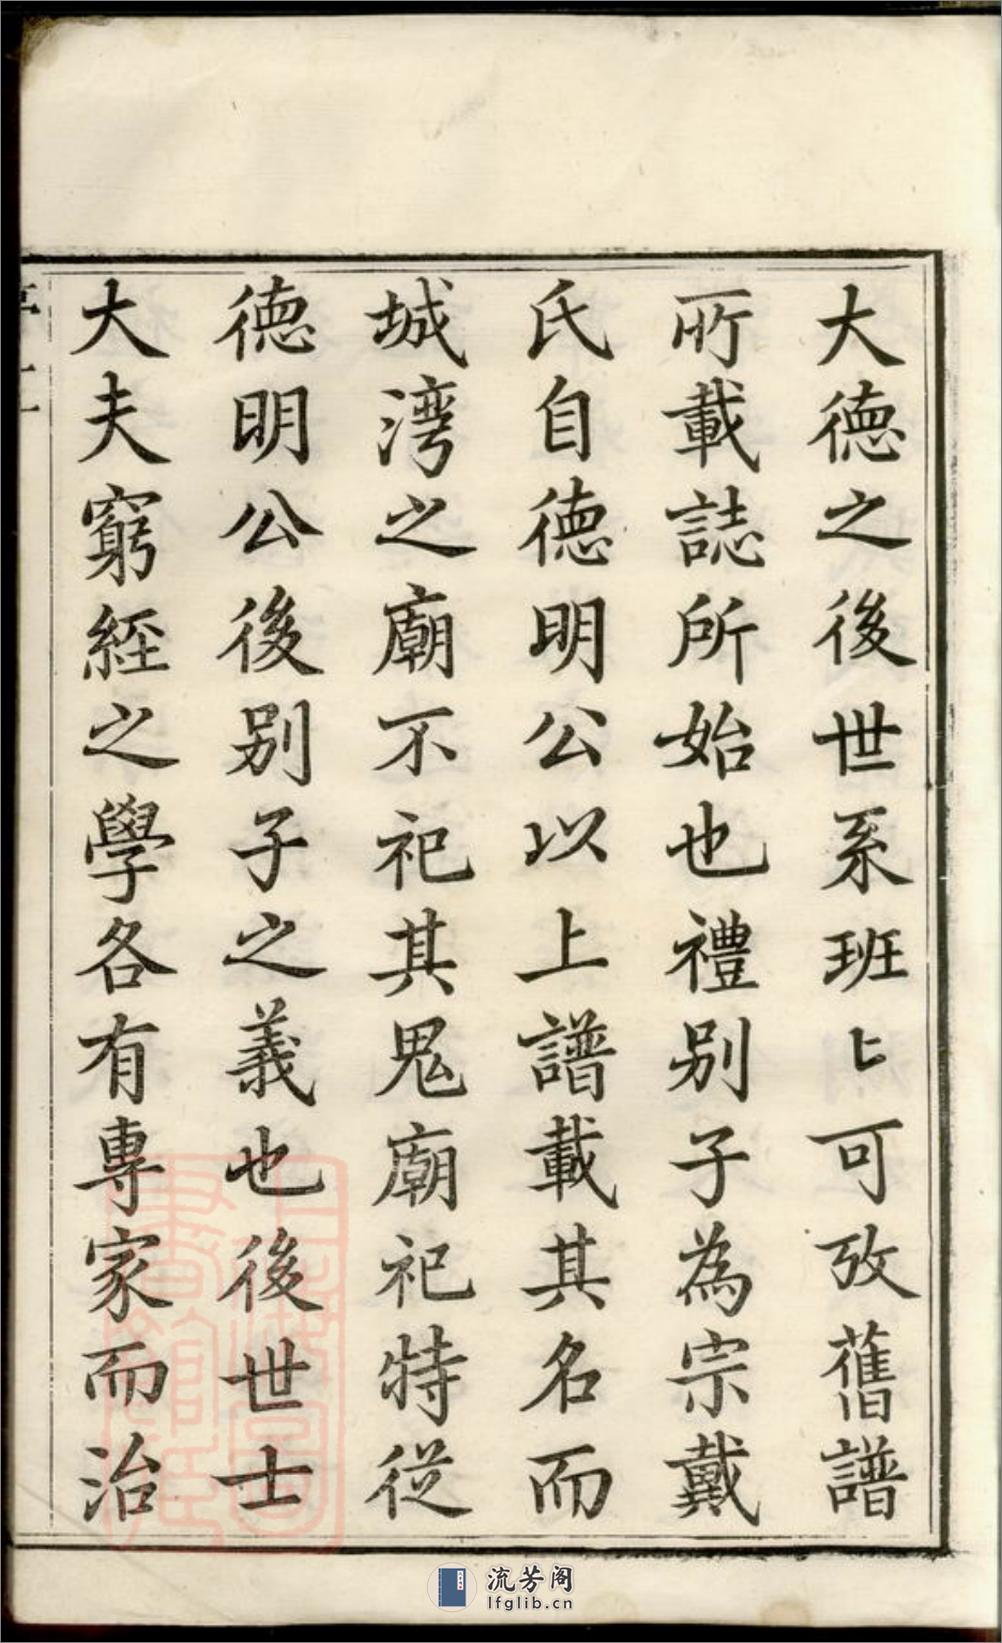 大德之後世系班〻可攷舊譜
所載誌所始也禮别子為宗戴
氏自德明公以上譜載其名而
城湾之廟不祀其鬼廟祀特從
德明公後别子之義也後世士
大夫窮經之學各有專家而治
流芳阁
lfglib.cn